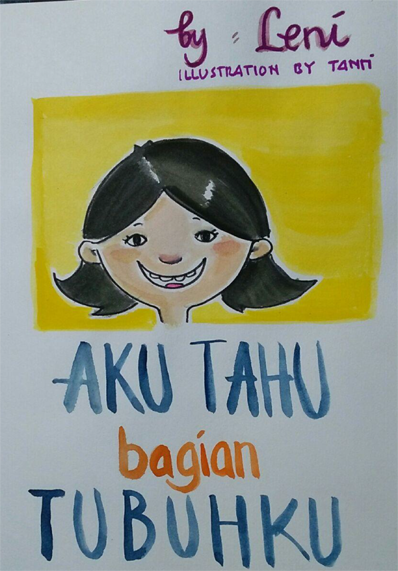 by : Leni
ILLUSTRATION BY TANTI
AKU TAHU
bagian
TUBUHKU